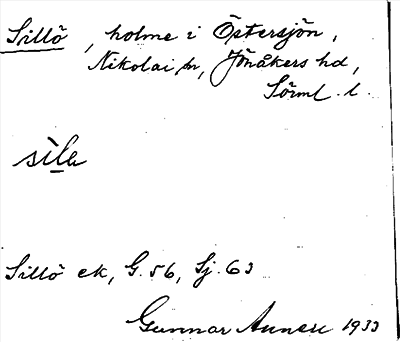 Sillö, holme i Östersjön,
Nikolai sn, Jönåkers hd,
Sörml. l.
sìla
Sillö ek, G. 56, Sj. 63
Gunnar 1933